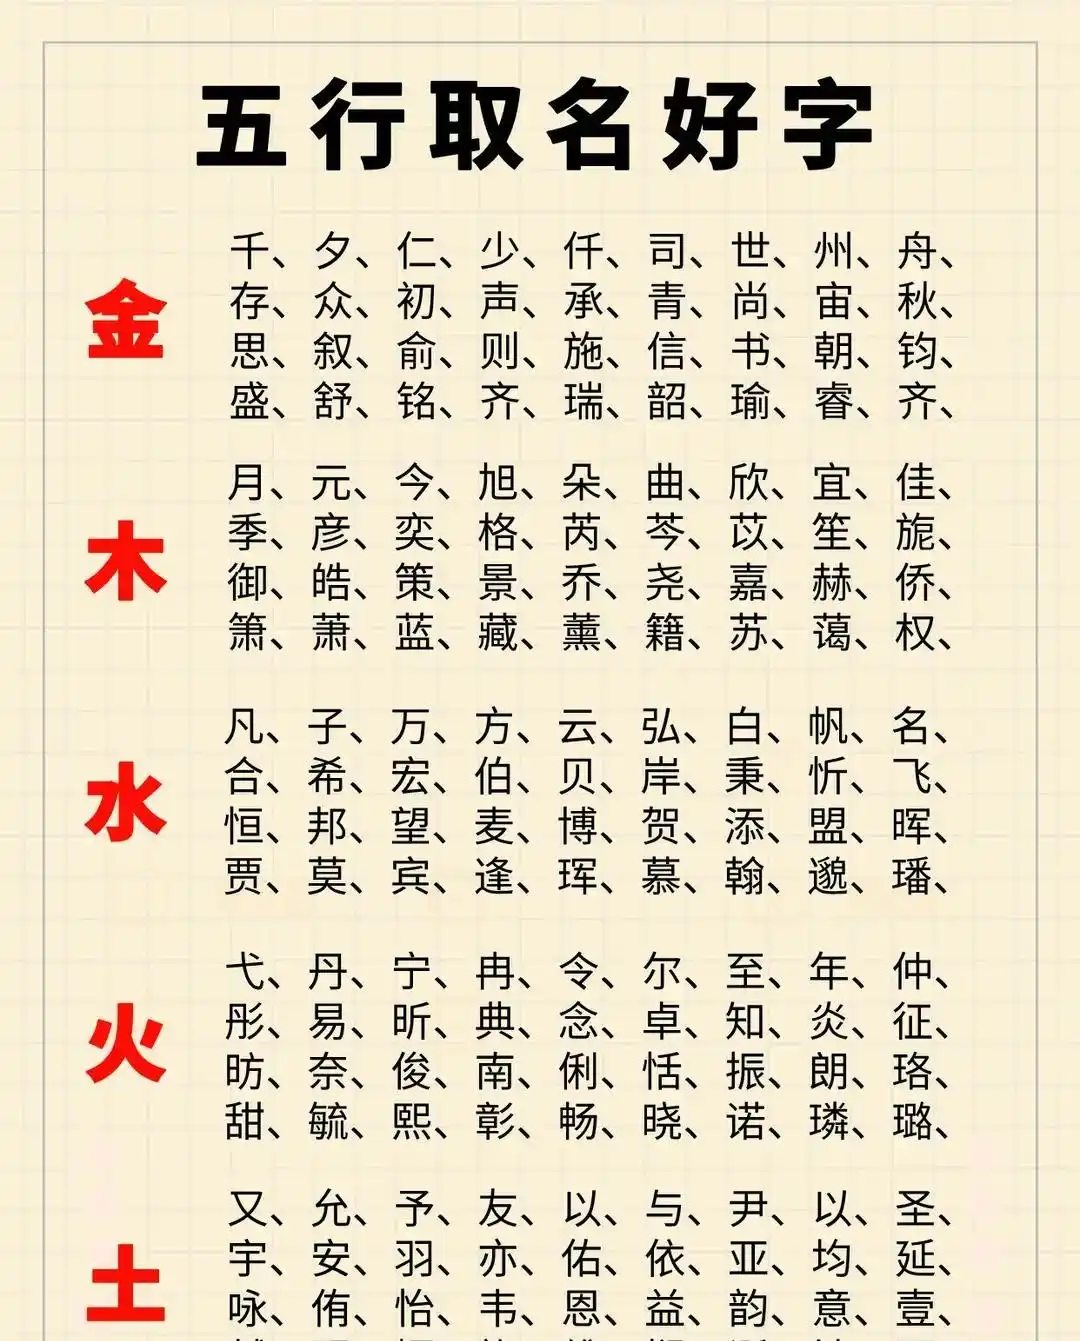 五行取名好字
金
千、夕、仁、少、仟、司、世、州、舟、
存、众、初、声、承、青、尚、宙、秋、
思、叙、俞、则、施、信、书、朝、钧、
盛、舒、铭、齐、瑞、韶、瑜、睿、齐、
木
月、元、今、旭、朵、曲、欣、宜、佳、
季、彦、奕、格、芮、芩、苡、笙、旎、
御、皓、策、景、乔、尧、嘉、赫、侨、
箫、萧、蓝、藏、薰、籍、苏、蔼、权、
水
凡、子、万、方、云、弘、白、帆、名、
合、希、宏、伯、贝、岸、秉、忻、飞、
恒、邦、望、麦、博、贺、添、盟、晖、
贾、莫、宾、逢、珲、慕、翰、邈、璠、
火
弋、丹、宁、冉、令、尔、至、年、仲、
彤、易、昕、典、念、卓、知、炎、征、
昉、奈、俊、南、俐、恬、振、朗、珞、
甜、毓、熙、彰、畅、晓、诺、璘、璐、
土
又、允、予、友、以、与、尹、以、圣、
宇、安、羽、亦、佑、依、亚、均、延、
咏、侑、怡、韦、恩、益、韵、意、壹、